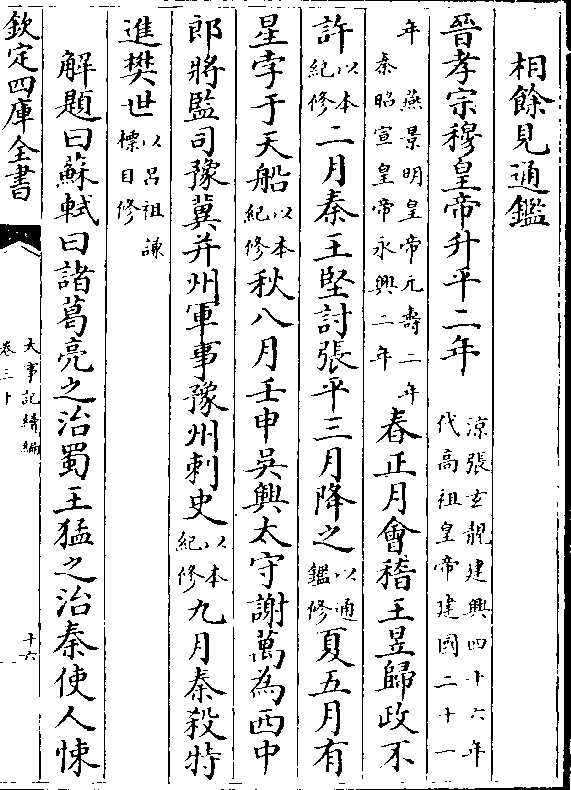 相餘見通鑑
晉孝宗穆皇帝升平二年 涼張玄靚建興四十六年 代高祖皇帝建國二十一
年 燕景明皇帝元壽二年 秦昭宣皇帝永興二年 春正月會稽王昱歸政不
許 以本紀修 二月秦王堅討張平三月降之 以通鑑修 夏五月有
星孛于天船 以本紀修 秋八月壬申吳興太守謝萬為西中
郎將監司豫冀并州軍事豫州刺史 以本紀修 九月秦殺特
進樊世 以呂祖謙標目修
解題曰蘇軾曰諸葛亮之治蜀王猛之治秦使人悚
欽定四庫全書
大事記續編
卷三十
十六